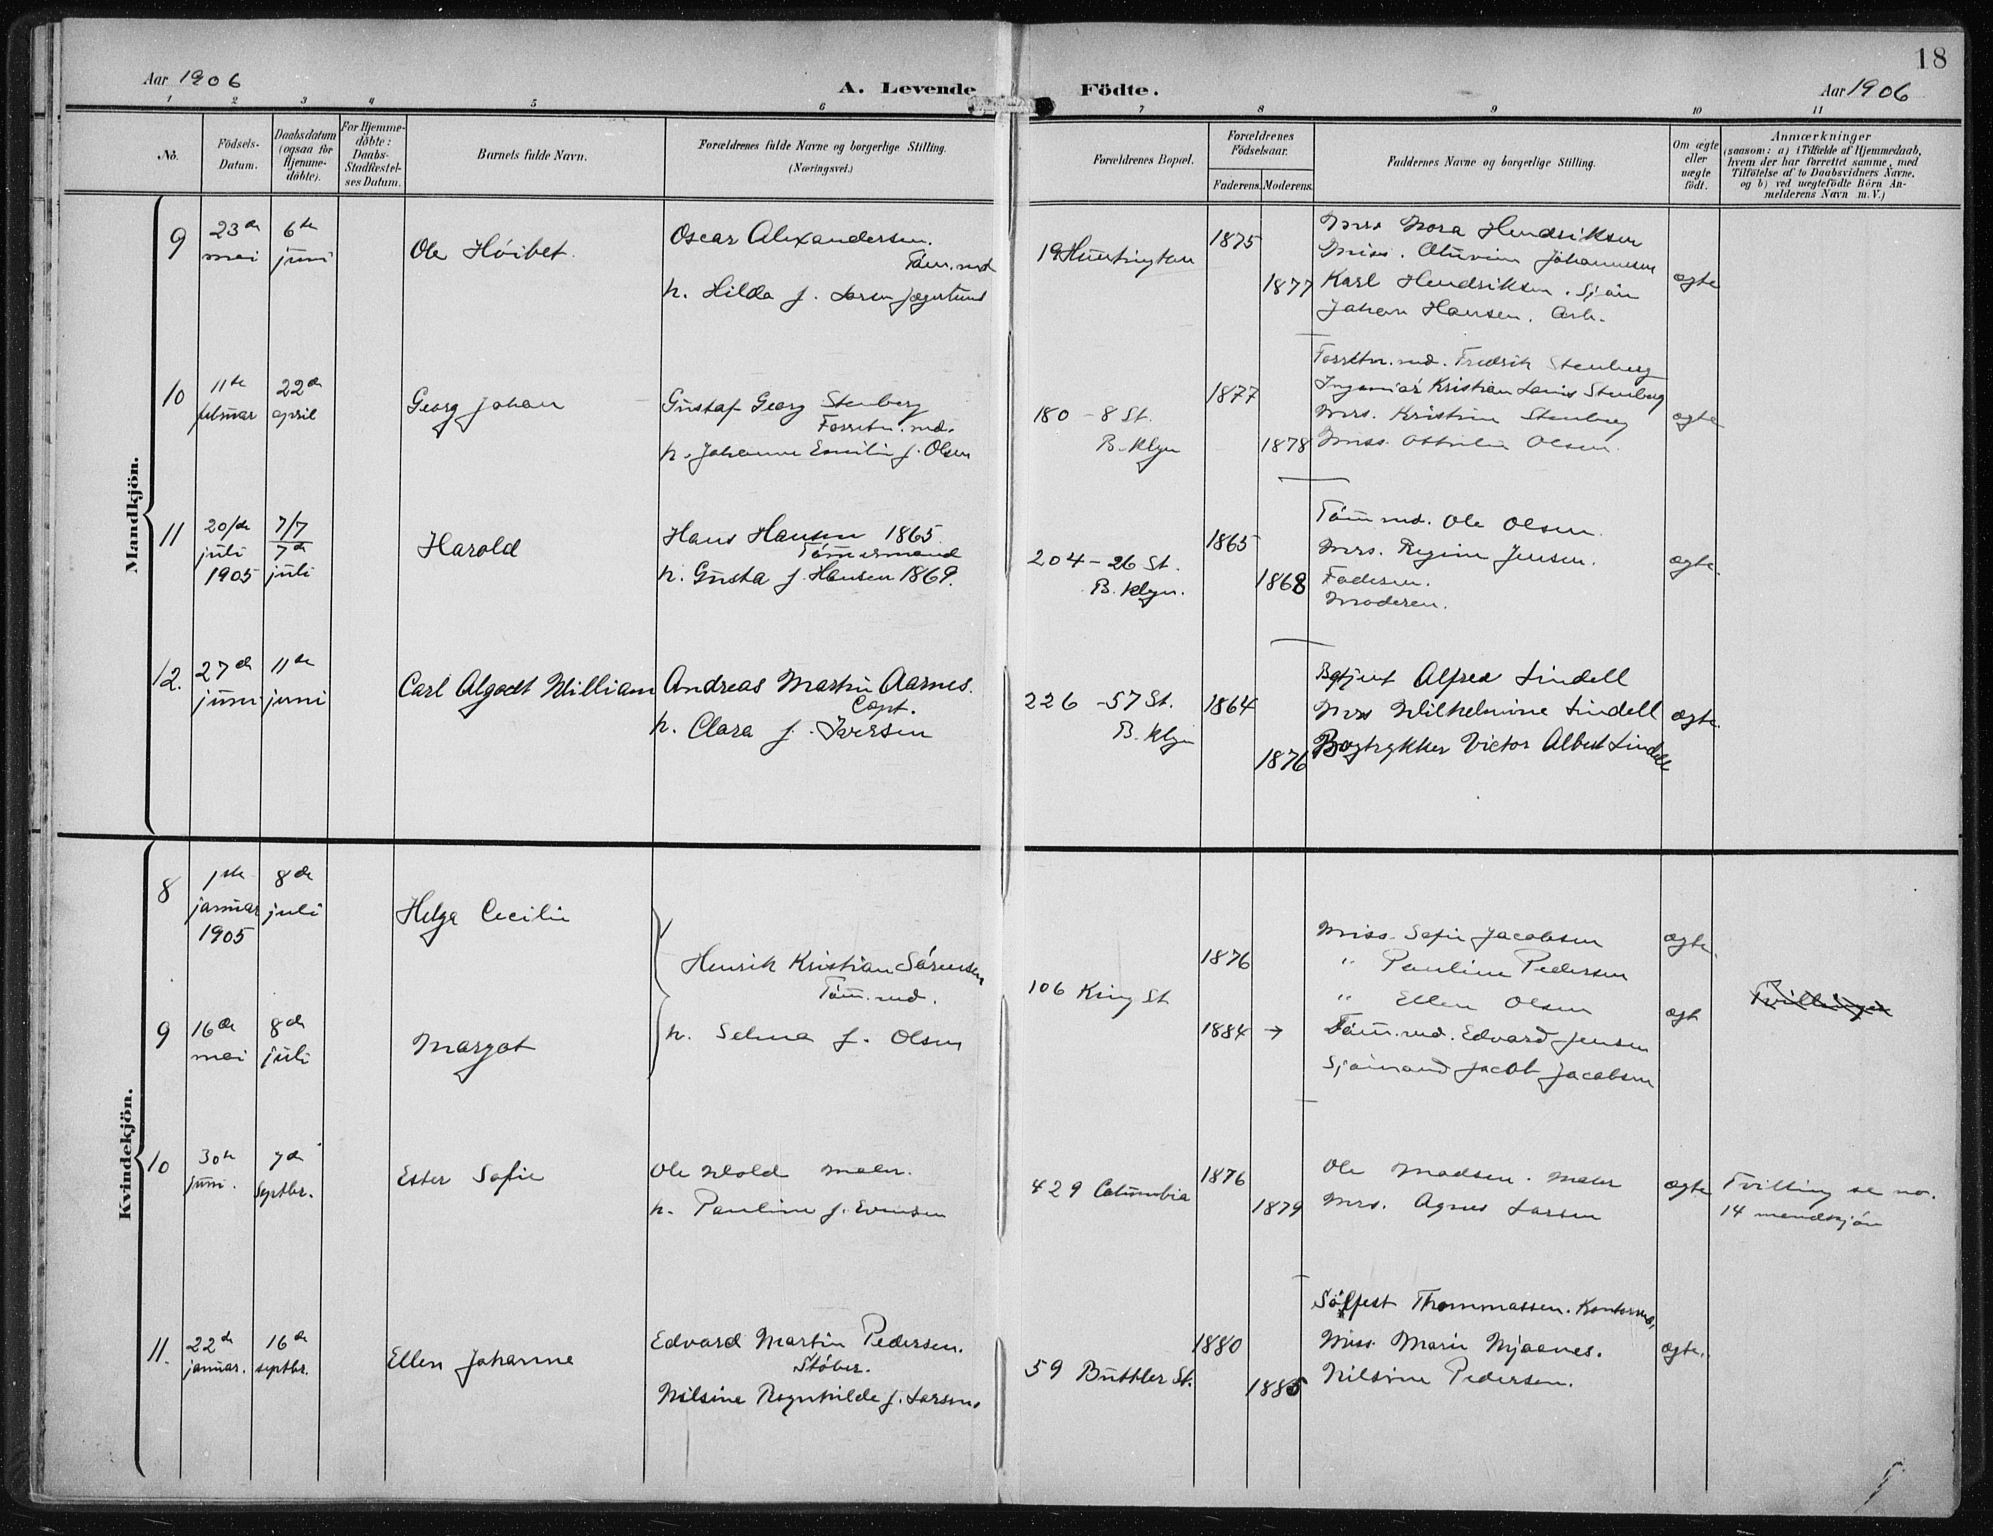 18
Aar 1906
A. Levende Födte.
Aar 1906
1 2 3 4 5 6 7 8 9 10 11
No.
Födsels-
Datum.
Daabsdatum
(ogsaa for
Hjemme-
döbte).
For Hjemme-
döbte:
Daabs-
Stadfæstel-
ses Datum.
Barnets fulde Navn.
Forældrenes fulde Navne og borgerlige Stilling.
(Næringsvei.)
Forældrenes Bopæl.
Forældrenes
Födselsaar.
Faderens. Moderens.
Faddernes Navne og borgerlige Stilling.
Om ægte
eller
uægte
födt.
Anmærkninger
(saasom: a) i Tilfælde af Hjemmedaab,
hvem der har forrettet samme, med
Tilföielse af to Daabsvidners Navne.
og b) ved uægtefödte Börn An-
melderens Navn m. V.)
Mandkjön.
9
23de
mai
6te
juni
Ole Höibet.
Oscar Alexandersen.
Töm.md
h. Hilda f. Larsen
19 Huntington
1875
1877
Mrs Nora Hendriksen
Miss. Johannesen
Karl Hendriksen. Sjöm
Johan Hansen. Arb.
ægte
10
11te
februar
22de
april
Georg Johan
Gustaf Georg Stenberg
Forretn. md.
h. Johanne Emilie f. Olsen
180 - 8 St.
B.klyn
1877
1878
Forretn. md. Fredrik Stenberg
Ingeniör Kristian Louis Stenberg
Mrs. Kristine Stenberg
Miss. Olsen.
ægte
11
20/de
juli
1905
7/7
7de
juli
Harold
Hans Hansen 1865.
Tömermand
h. Gusta f. Hansen 1869.
204 - 26 St.
B.klyn.
1865
1868
Töm md. Ole Olsen.
Mrs. Regine Jensen.
Faderen.
Moderen.
ægte.
12.
27de
juni
11te
juni
Carl Algodt William
Andreas Martin Aarnes.
Capt.
h. Clara f. Iversen
226 - 57 St.
B.klyn
1864
1876
Alfred Lindell
Mrs Wilhelmine Lindell
Bogtrykker Victor Albert Lindell
ægte.
Kvindekjön.
8
1ste
januar
1905
8de
juli
Helga Cecilie
Henrik Kristian Sörensen
Töm. md.
h. Selma f. Olsen
106 King St
1876
1884 →
Miss. Sofie Jacobsen
" Pauline Pedersen
" Ellen Olsen
Töm. md. Edvard Jensen
Sjömand Jacob Jacobsen
ægte.
Tvillinger
9
16de
mai
8de
juli
Margot
ægt
10
30te
juni.
7de
septbr.
Ester Sofie
Ole Wold maler.
h. Pauline f. Evensen
429 Columbia
1876
1879
Ole Madsen. Maler
Mrs. Agnes Larsen
ægte
Tvilling se no.
14 mandkjön
11.
22de
januar.
16de
septbr.
Ellen Johanne
Edvard Martin Pedersen.
Stöber.
Nilsine Ragnhilde f. Larsen.
59 Buttler St.
1880
1885
Sölfest Thommassen. Kontormd.
Miss. Marie Mjaanes.
Nilsine Pedersen.
ægte.